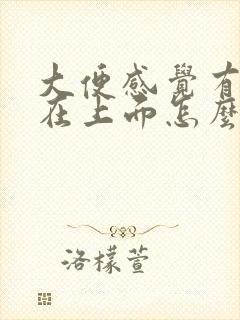 大便感覺有
在上面怎麼
洛檬萱